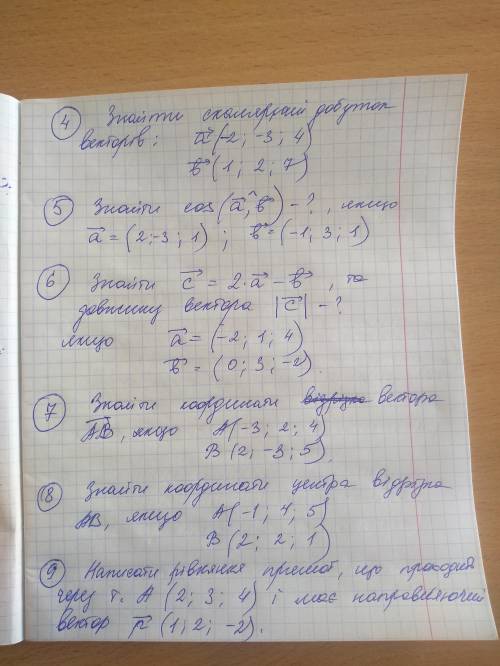 4 Знайти скалярний добуток
векторів: a (-2; -3; 4)
b (1; 2; 7)
5 Знайти cos(a,^b) - ?, якщо
a = (2; -3; 1); b = (-1; 3; 1)
6 Знайти c = 2·a - b, та
довжину вектора |c| - ?
якщо a = (-2; 1; 4)
b = (0; 3; -2).
7 Знайти координати відрізка вектора
AB, якщо A(-3; 2; 4)
B (2; -3; 5).
8 Знайти координати центра відрізка
AB, якщо A(-1; 4; 5)
B (2; 2; 1)
9 Написати рівняння прямої, що проходить
через т. A (2; 3; 4) і має направляючий
вектор p (1; 2; -2).